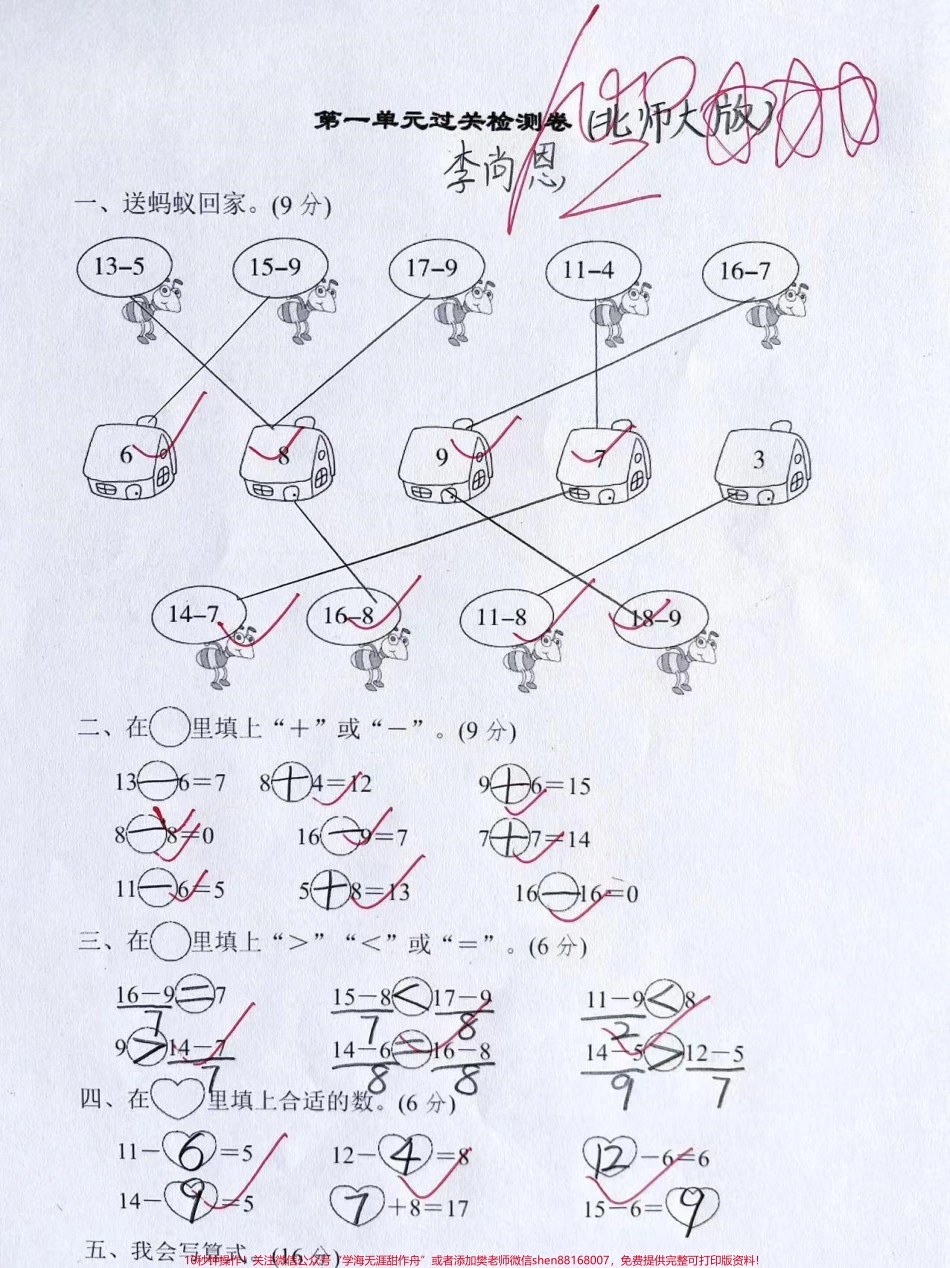 第一单元过关检测卷(北师大版)
李尚恩
一、送蚂蚁回家。(9分)
13-5 15-9 17-9 11-4 16-7
6 8 9 7 3
14-7 16-8 11-8 18-9
二、在○里填上“+”或“-”。(9分)
13-6=7 8+4=12 9+6=15
8-8=0 16-9=7 7+7=14
11-6=5 5+8=13 16-16=0
三、在○里填上“>”“<”或“=”。(6分)
16-9=7 15-8<17-9 11-9<8
7 7 8 2
9>14-7 14-6=16-8 14-5>12-5
7 8 8 9 7
四、在♡里填上合适的数。(6分)
11-6=5 12-4=8 12-6=6
14-9=5 7+8=17 15-6=9
五、我会写算式。(16分)
10秒钟操作：关注微信公众号“学海无涯甜作舟”或者添加樊老师微信shen88168007，免费提供完整可打印版资料！